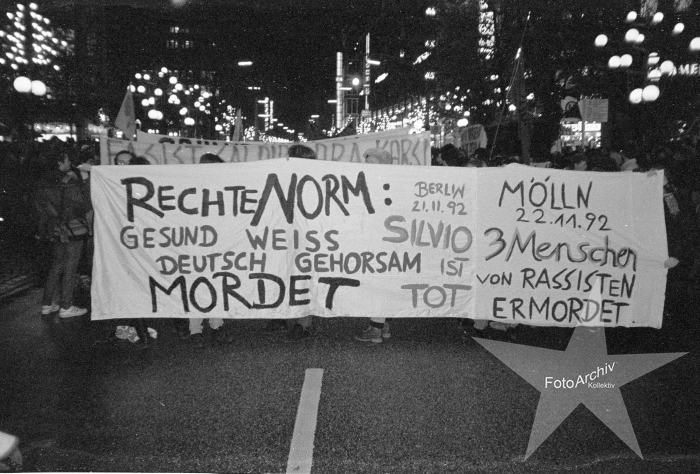 RECHTE NORM:
GESUND WEISS
DEUTSCH GEHORSAM
MORDET
BERLIN
21.11.92
SILVIO
IST
TOT
MÖLLN
22.11.92
3 Menschen
VON RASSISTEN
ERMORDET.
FotoArchiv
Kollektiv